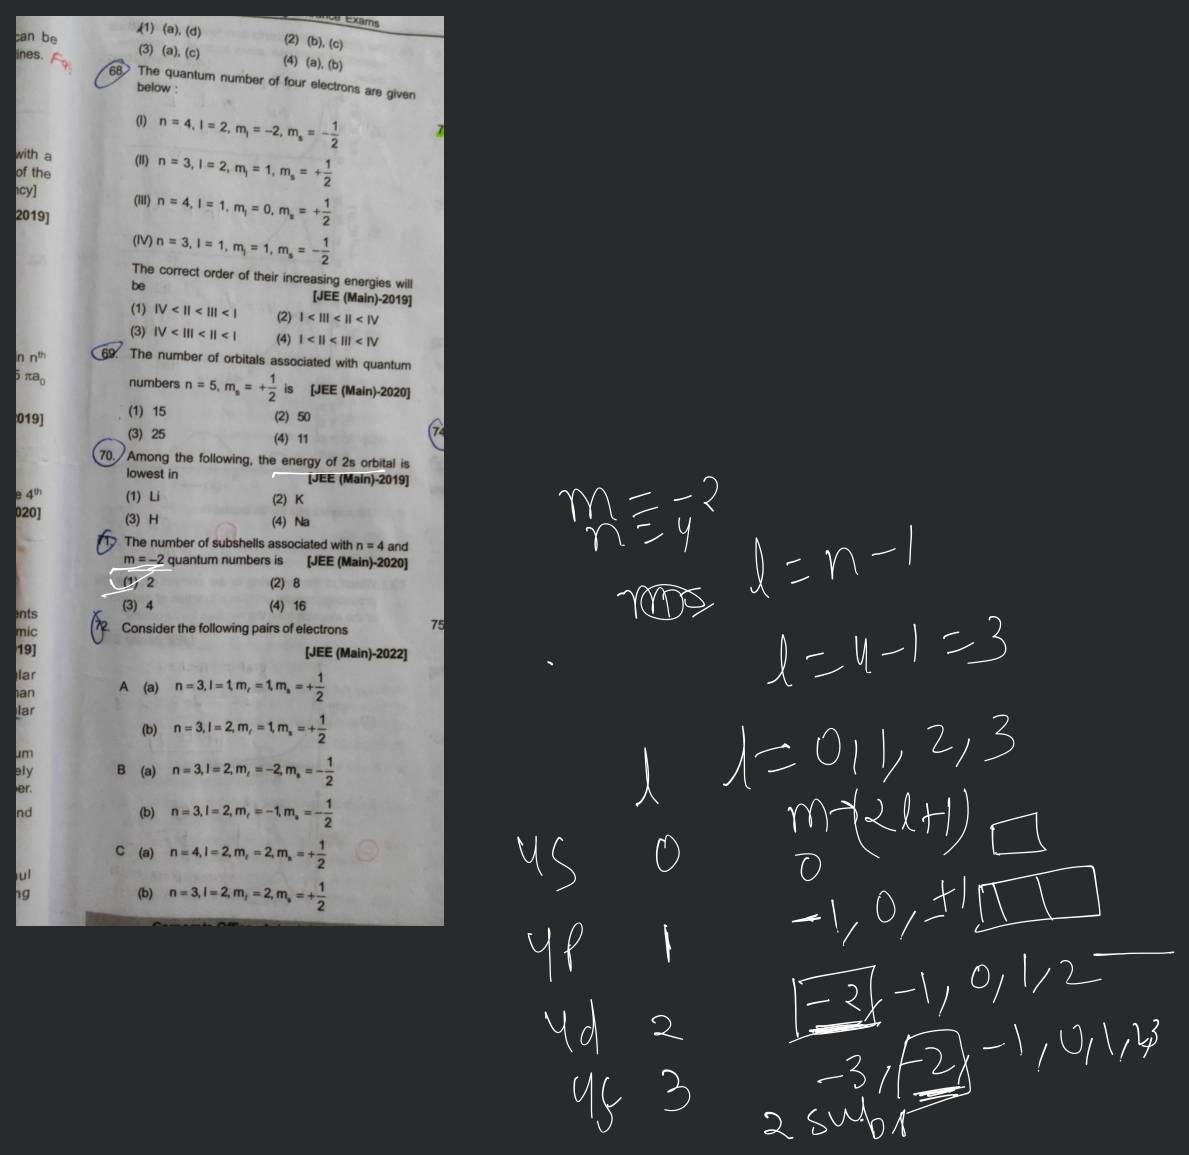 ance Exams
can be
ines.
with a
of the
ncy]
2019]
n nth
5 πa₀
2019]
e 4th
020]
ents
mic
19]
lar
nan
lar
um
ely
er.
nd
ul
ng
(1) (a), (d)
(2) (b), (c)
(3) (a), (c)
(4) (a), (b)
68. The quantum number of four electrons are given
below :
(I) n = 4, l = 2, mₗ = –2, mₛ = –1/2
(II) n = 3, l = 2, mₗ = 1, mₛ = +1/2
(III) n = 4, l = 1, mₗ = 0, mₛ = +1/2
(IV) n = 3, l = 1, mₗ = 1, mₛ = –1/2
The correct order of their increasing energies will
be [JEE (Main)-2019]
(1) IV < II < III < I
(2) I < III < II < IV
(3) IV < III < II < I
(4) I < II < III < IV
69. The number of orbitals associated with quantum
numbers n = 5, mₛ = +1/2 is [JEE (Main)-2020]
(1) 15
(2) 50
(3) 25
(4) 11
70. Among the following, the energy of 2s orbital is
lowest in [JEE (Main)-2019]
(1) Li
(2) K
(3) H
(4) Na
71. The number of subshells associated with n = 4 and
m = –2 quantum numbers is [JEE (Main)-2020]
(1) 2
(2) 8
(3) 4
(4) 16
72. Consider the following pairs of electrons
[JEE (Main)-2022]
A (a) n = 3, l = 1, mₗ = 1, mₛ = +1/2
(b) n = 3, l = 2, mₗ = 1, mₛ = +1/2
B (a) n = 3, l = 2, mₗ = –2, mₛ = –1/2
(b) n = 3, l = 2, mₗ = –1, mₛ = –1/2
C (a) n = 4, l = 2, mₗ = 2, mₛ = +1/2
(b) n = 3, l = 2, mₗ = 2, mₛ = +1/2
7
74
75
m = -2
n = 4
l = n - 1
l = 4 - 1 = 3
l = 0, 1, 2, 3
l m → (2l+1)
4s 0 0
4p 1 -1, 0, +1
4d 2 -2, -1, 0, 1, 2
4f 3 -3, -2, -1, 0, 1, 2, 3
2